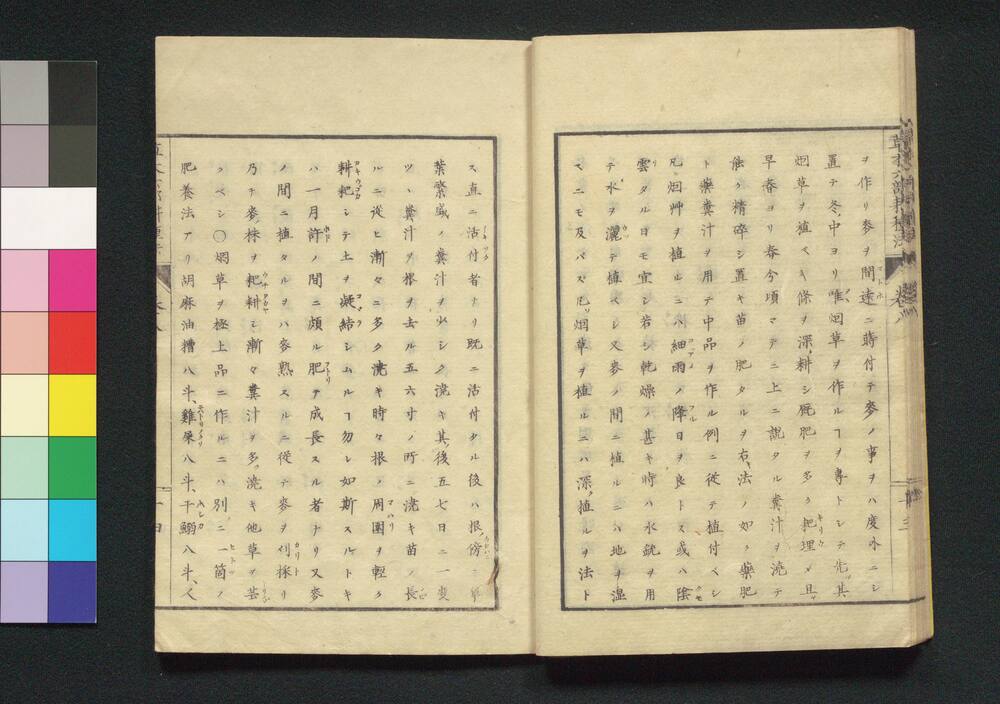 ヲ作リ麥ヲ間遠ニ蒔付テ麥ノ事ヲハ度外ニシ
置テ冬中ヨリ唯烟草ヲ作ルヿヲ專トシテ先其
烟草ヲ植ベキ條ヲ深ク耕シ厩肥ヲ多ク把理メ且ツ
早春ヨリ春分頃マデニ上ニ說タル糞汁ヲ澆テ
能ク精碎シ置キ苗ノ肥タルヲ右ノ法ノ如ク藥肥
ト藥糞汁ヲ用テ中品ヲ作ル例ニ從テ植付ベシ
凡ソ烟艸ヲ植ルニハ細雨ノ降日ヲ良トス或ハ陰
雲タル日モ宜シ若シ乾燥ノ甚キ時ハ水銃ヲ用
テ水ヲ灑テ植ベシ又麥ノ間ニ植ルニハ地ヲ濕
スニモ及バズ凡ソ烟草ヲ植ルニハ深ク植ルヲ法ト
ス直ニ活付者ナリ既ニ活付タル後ハ根ノ傍ニ草
葉繁盛ノ糞汁ヲ少シク澆キ其後五七日ニ一度
ツヽ糞汁ヲ根ヲ去ル五六寸ノ所ニ澆キ苗ノ長
ルニ從ヒ漸々ニ多ク澆キ時々根ノ周圍ヲ輕ク
耕耙シテ土ヲ凝結シムルヿ勿レ如斯スルトキ
ハ一月許ノ間ニ頗ル肥テ成長スル者ナリ又麥
ノ間ニ植タルヲハ麥熟スルニ從テ麥ヲ刈採リ
乃チ麥ノ株ヲ耙耕シ漸々糞汁ヲ多ク澆キ他草ヲ芸
ルベシ〇烟草ヲ極上品ニ作ルニハ別ニ一箇ノ
肥養法アリ胡麻油糟八斗、雞屎八斗、干鰯八斗、人